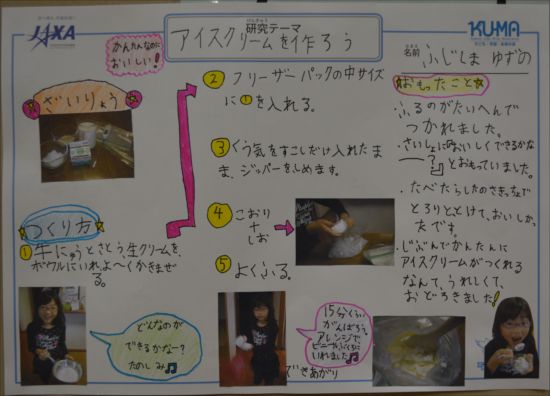 JAXA
けんきゅう
研究テーマ
アイスクリームを作ろう
KUMA
なまえ
名前 ふじしま ゆずの
かんたんなのに
おいしい!
ざいりょう
つくり方
① 牛にゅうとさとう、生クリームを、
ボウルにいれよ〜くかきまぜ
る。
どんなのが
できるかなー?
たのしみ♫
② フリーザーパックの中サイズ
に①を入れる。
③ くう気をすこしだけ入れたま
ま、ジッパーをしめます。
④ こおり
+
しお
⑤ よくふる。
15分くらい
がんばろう。
アレンジで
ビニールぶくろに
いれました♫
できあがり
おもったこと
・ふるのがたいへんで
つかれました。
・さいしょにおいしくできるかな
ー?とおもっていました。
・たべたらしたのさきっちょで
とろりととけて、おいしかっ
たです。
・じぶんでかんたんに
アイスクリームがつくれる
なんて、うれしくて、
おどろきました!